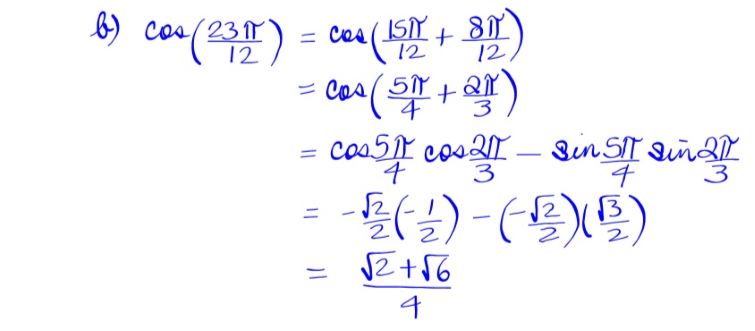 b) cos(23π/12) = cos(15π/12 + 8π/12)
= cos(5π/4 + 2π/3)
= cos 5π/4 cos 2π/3 − sin 5π/4 sin 2π/3
= -√2/2(-1/2) − (-√2/2)(√3/2)
= (√2+√6)/4